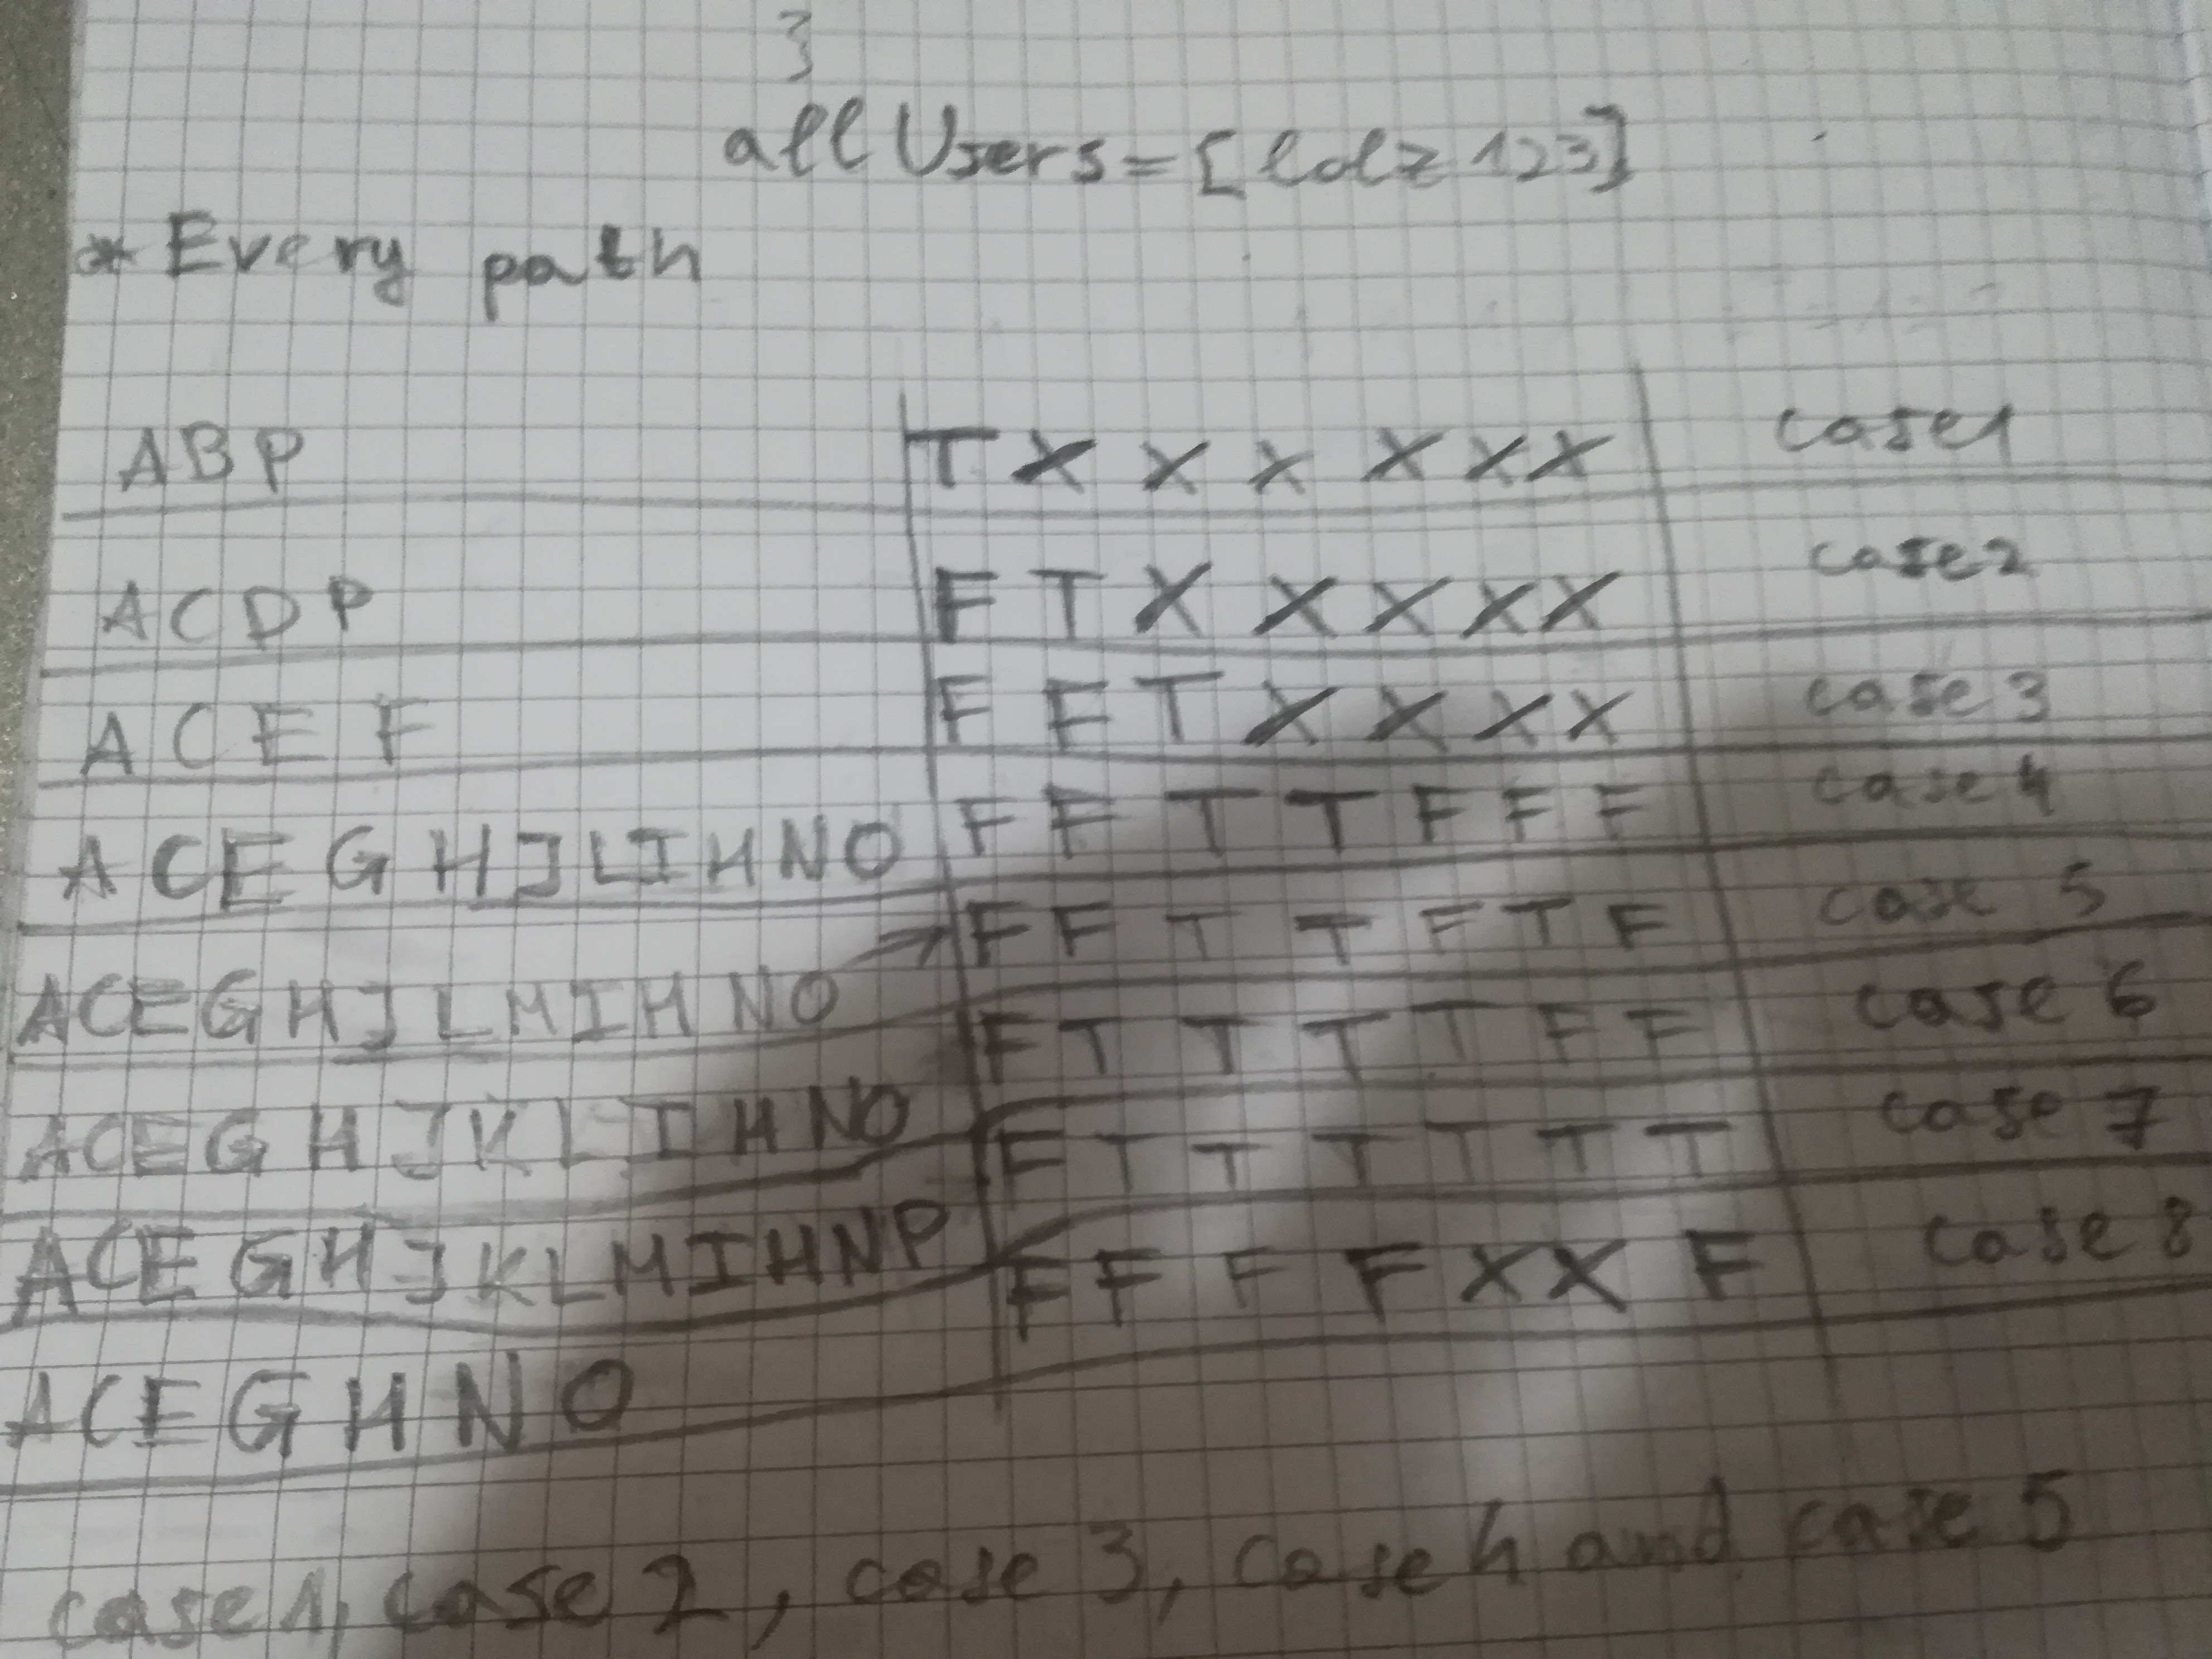 }
allUsers = [lolz123]
* Every path
ABP T X X X X X X case1
ACDP F T X X X X X case2
ACEF F F T X X X X case 3
ACEGHJLIHNO F F T T F F F case 4
ACEGHJLMIHNO → F F T T F T F case 5
ACEGHJKLIHNO F T T T T F F case 6
ACEGHJKLMIHNP F T T T T T T case 7
ACEGHNO F F F F X X F case 8
case1, case 2, case 3, case 4 and case 5